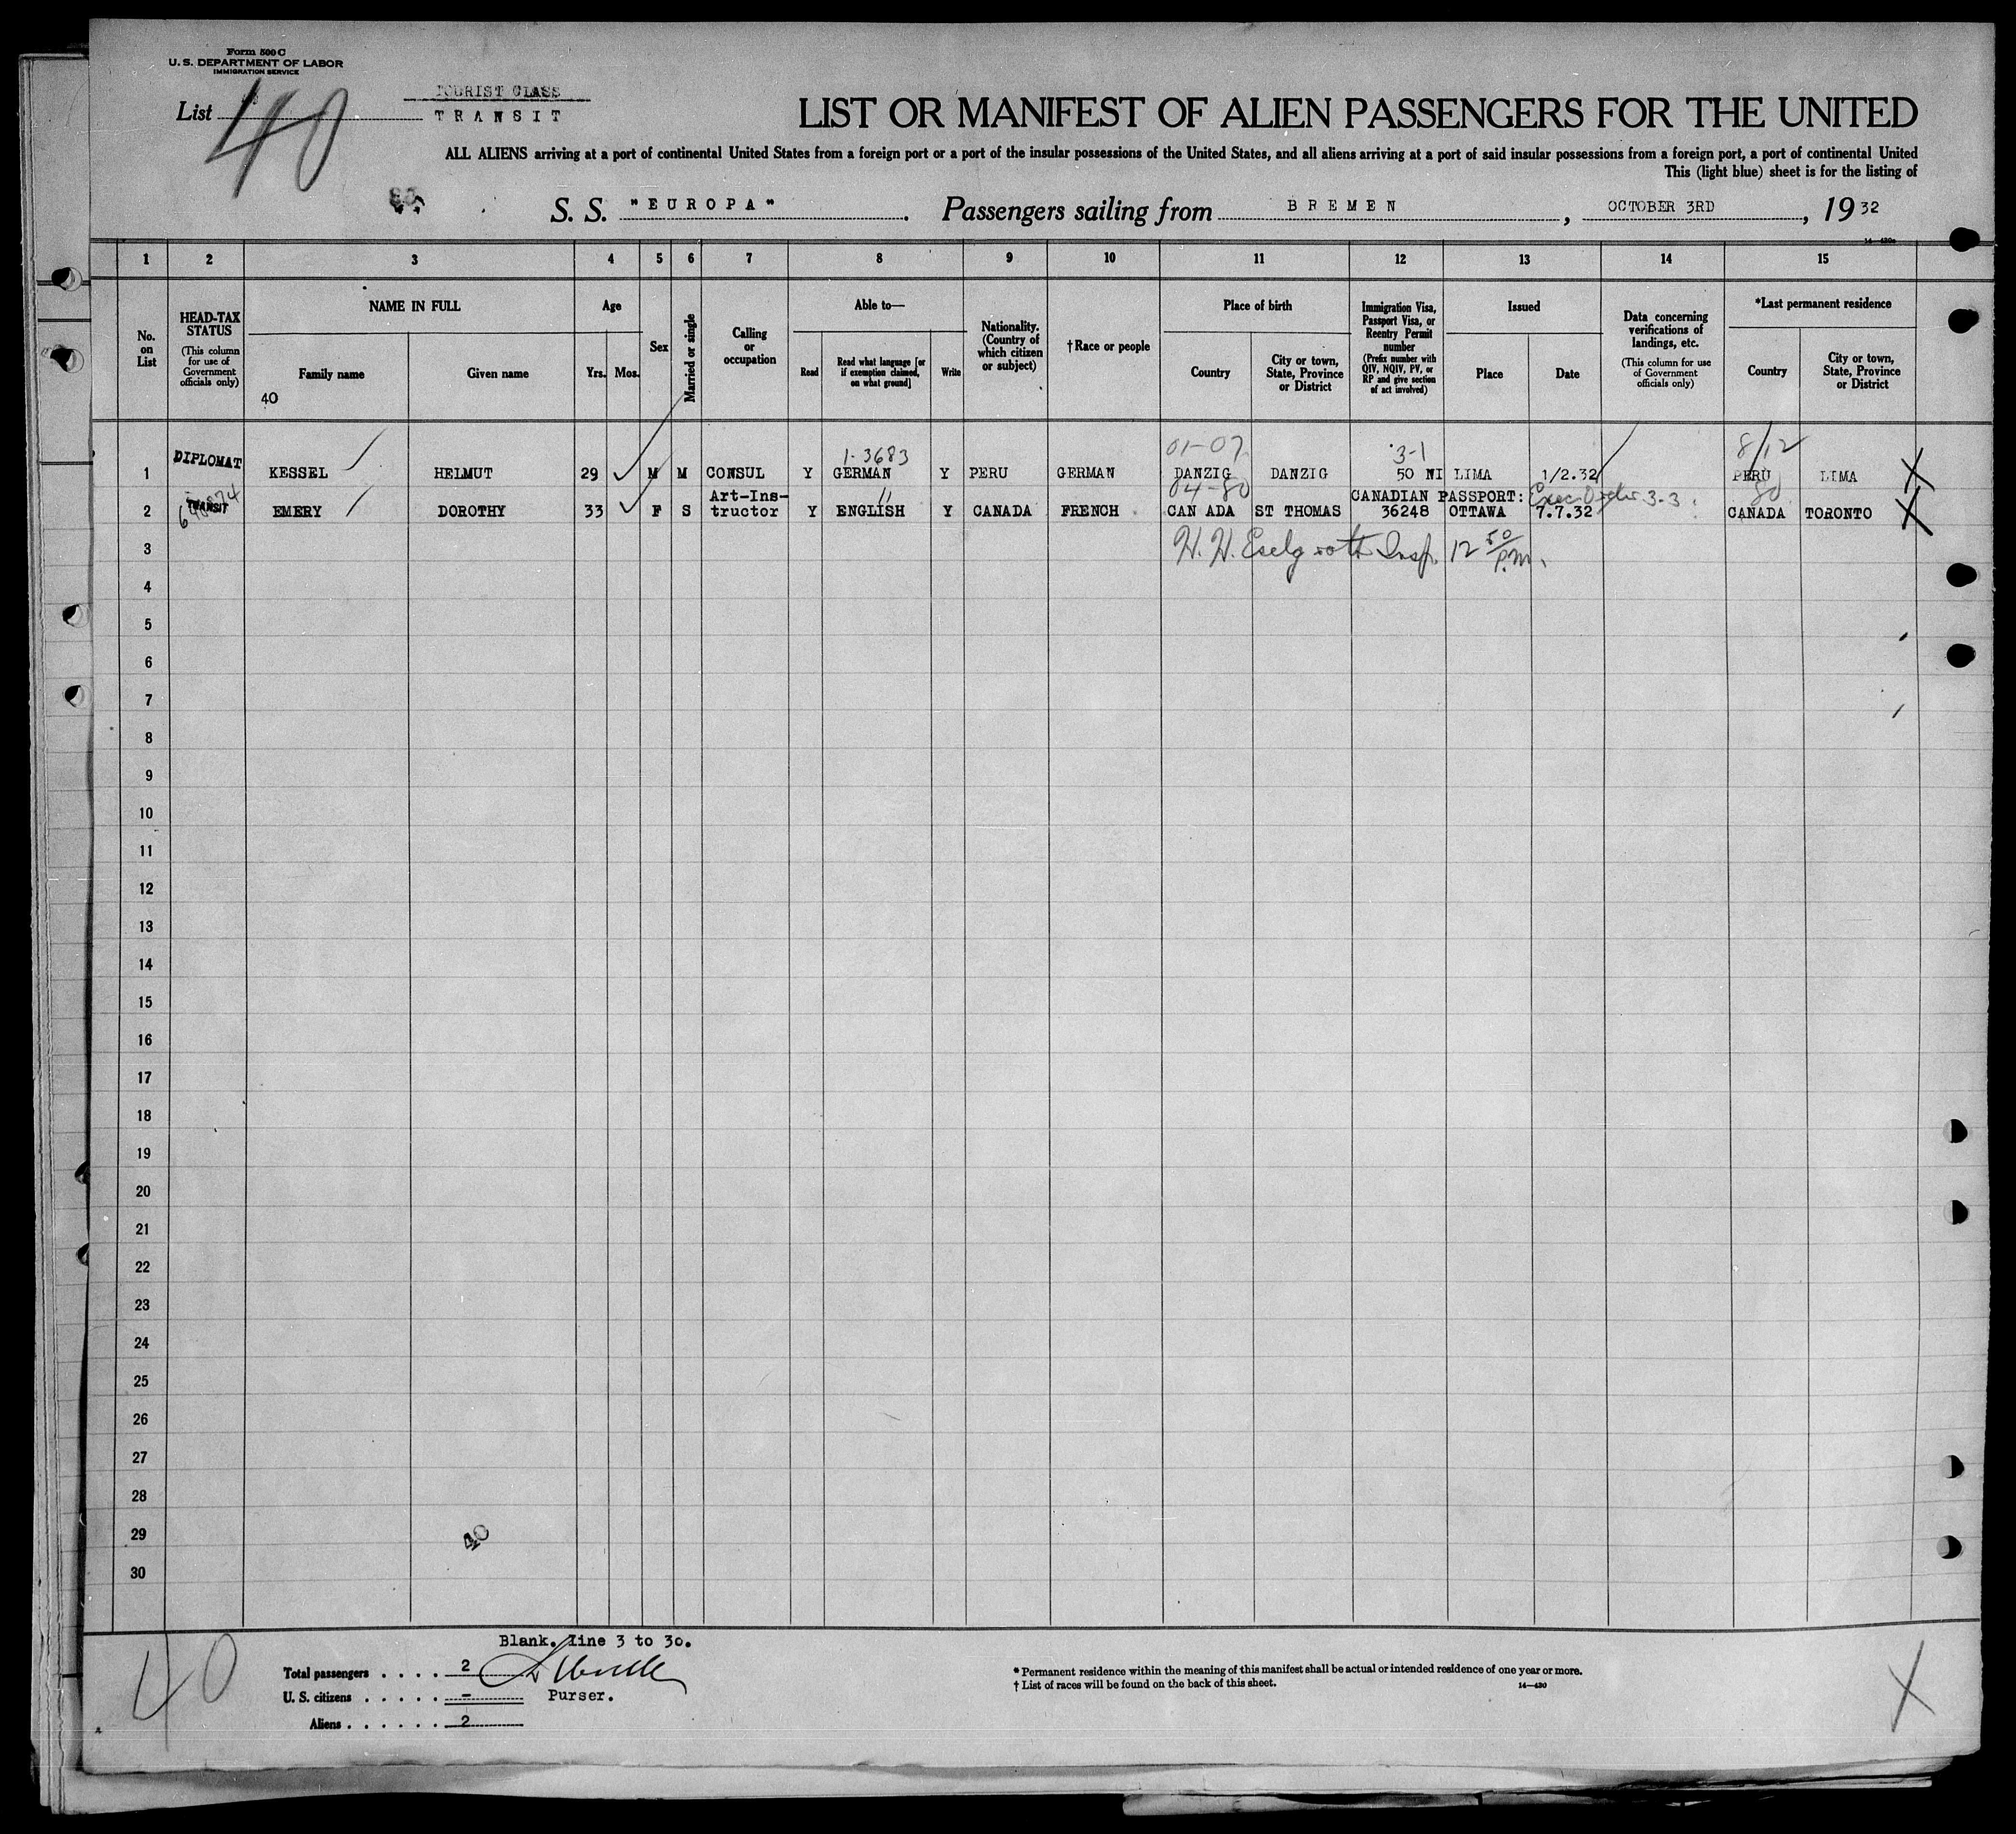 Form 500 C
U. S. DEPARTMENT OF LABOR
IMMIGRATION SERVICE
List 40
TOURIST CLASS
TRANSIT
LIST OR MANIFEST OF ALIEN PASSENGERS FOR THE UNITED
ALL ALIENS arriving at a port of continental United States from a foreign port or a port of the insular possessions of the United States, and all aliens arriving at a port of said insular possessions from a foreign port, a port of continental United
This (light blue) sheet is for the listing of
S. S. "EUROPA". Passengers sailing from BREMEN, OCTOBER 3RD, 1932
14—430a
1 2 3 4 5 6 7 8 9 10 11 12 13 14 15
No. on List
HEAD-TAX STATUS (This column for use of Government officials only)
NAME IN FULL Family name Given name
40
Age Yrs. Mos.
Sex
Married or single
Calling or occupation
Able to— Read Read what language [or if exemption claimed, on what ground] Write
Nationality. (Country of which citizen or subject)
† Race or people
Place of birth Country City or town, State, Province or District
Immigration Visa, Passport Visa, or Reentry Permit number (Prefix number with QIV, NQIV, PV, or RP and give section of act involved)
Issued Place Date
Data concerning verifications of landings, etc. (This column for use of Government officials only)
*Last permanent residence Country City or town, State, Province or District
1-3683 01-07 3-1 8/12
1 DIPLOMAT KESSEL HELMUT 29 M M CONSUL Y GERMAN Y PERU GERMAN DANZIG DANZIG 50 NI LIMA 1/2.32 PERU LIMA X
04-80 CANADIAN PASSPORT: Exec. Order 3-3 80
2 TRANSIT EMERY DOROTHY 33 F S Art-Ins-tructor Y ENGLISH Y CANADA FRENCH CAN ADA ST THOMAS 36248 OTTAWA 7.7.32 CANADA TORONTO X
3 H. H. Insp. 12 50 P.M.
4
5
6
7
8
9
10
11
12
13
14
15
16
17
18
19
20
21
22
23
24
25
26
27
28
29
40
30
Blank. line 3 to 30.
40
Total passengers . . . . 2
U. S. citizens . . . . . –
Purser.
Aliens . . . . . . 2
* Permanent residence within the meaning of this manifest shall be actual or intended residence of one year or more.
† List of races will be found on the back of this sheet.
14—430
X